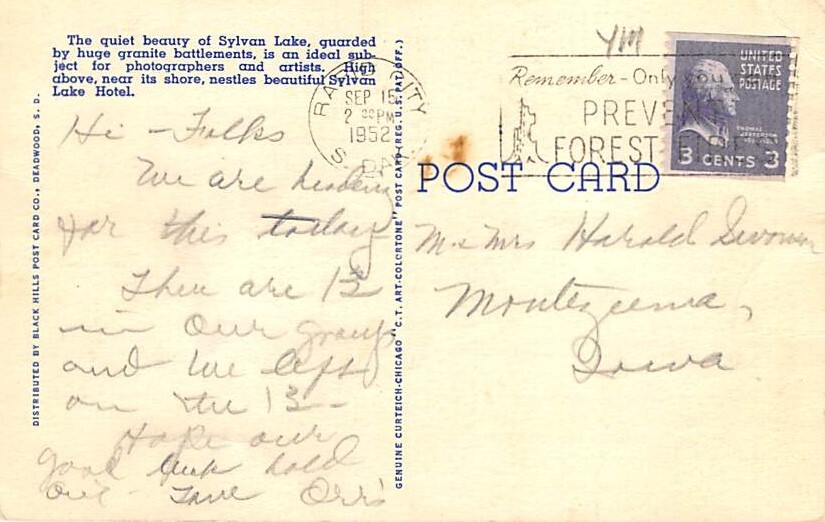 The quiet beauty of Sylvan Lake, guarded
by huge granite battlements, is an ideal sub-
ject for photographers and artists. High
above, near its shore, nestles beautiful Sylvan
Lake Hotel.
Hi - Folks
We are heading
for this today
There are 13
in our group
and we left
on the 13 -
Hope our
good luck hold
out - Love Orr's
DISTRIBUTED BY BLACK HILLS POST CARD CO., DEADWOOD, S. D.
GENUINE CURTEICH-CHICAGO "C.T. ART-COLORTONE" POST CARD (REG. U.S. PAT. OFF.)
RAPID CITY
SEP 15
2 30 PM
1952
S. DAK.
YM
Remember - Only you can
PREVENT
FOREST FIRES
UNITED
STATES
POSTAGE
THOMAS
JEFFERSON
3 CENTS 3
POST CARD
Mr & Mrs Harold
Montezuma,
Iowa